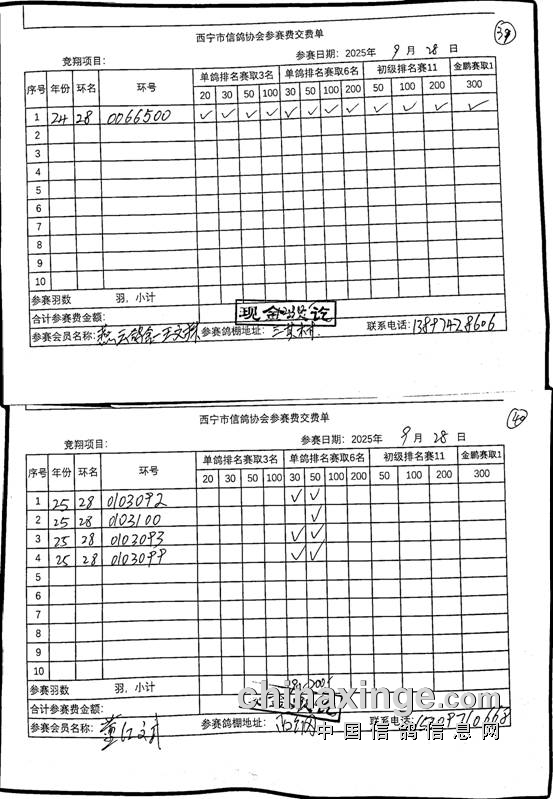 西宁市信鸽协会参赛费交费单
39
竞翔项目: 参赛日期: 2025年 9 月 28 日
序号 年份 环名 环号 单鸽排名赛取3名 单鸽排名赛取6名 初级排名赛11 金鹏赛取1
20 30 50 100 30 50 100 200 50 100 200 300
1 24 28 0066500 ✓ ✓ ✓ ✓ ✓ ✓ ✓ ✓ ✓ ✓ ✓ ✓
2
3
4
5
6
7
8
9
10
参赛羽数 羽, 小计
合计参赛费金额: 现金
参赛会员名称: 参赛鸽棚地址: 三其村 联系电话: 13897428606
西宁市信鸽协会参赛费交费单
40
竞翔项目: 参赛日期: 2025年 9 月 28 日
序号 年份 环名 环号 单鸽排名赛取3名 单鸽排名赛取6名 初级排名赛11 金鹏赛取1
20 30 50 100 30 50 100 200 50 100 200 300
1 25 28 0103092 ✓ ✓
2 25 28 0103100 ✓
3 25 28 0103093 ✓ ✓
4 25 28 0103099 ✓ ✓
5
6
7
8
9
10
参赛羽数 羽, 小计
合计参赛费金额:
参赛会员名称: 参赛鸽棚地址: 联系电话:
chinaxinge.com
中国信鸽信息网